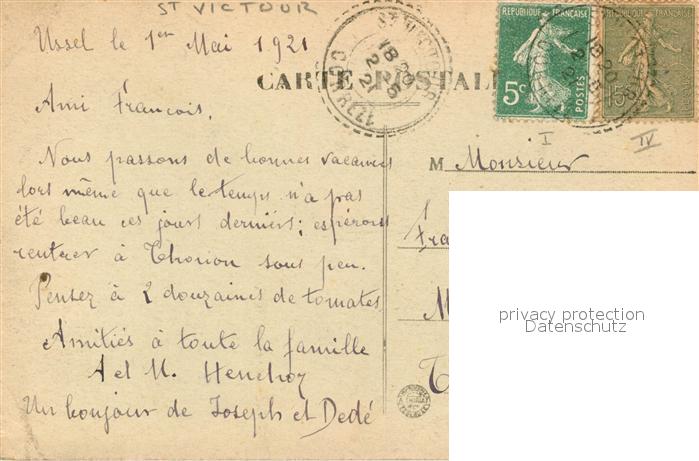 ST VICTOUR
Ussel le 1er Mai 1921
CARTE POSTALE
ST VICTOUR
CORRÈZE
18 20
2 5
21
REPUBLIQUE FRANÇAISE
5c
POSTES
REPUBLIQUE FRANÇAISE
15c
I
IV
Ami François,
Nous passons de bonnes vacances
lors même que le temps n'a pas
été beau ces jours derniers; espérons
rentrer à Thorion sous peu.
Pensez à 2 douzaines de tomates
Amitiés à toute la famille
A et M.
Un bonjour de Joseph et Dedé
M Monsieur
Fra
M
T
privacy protection
Datenschutz